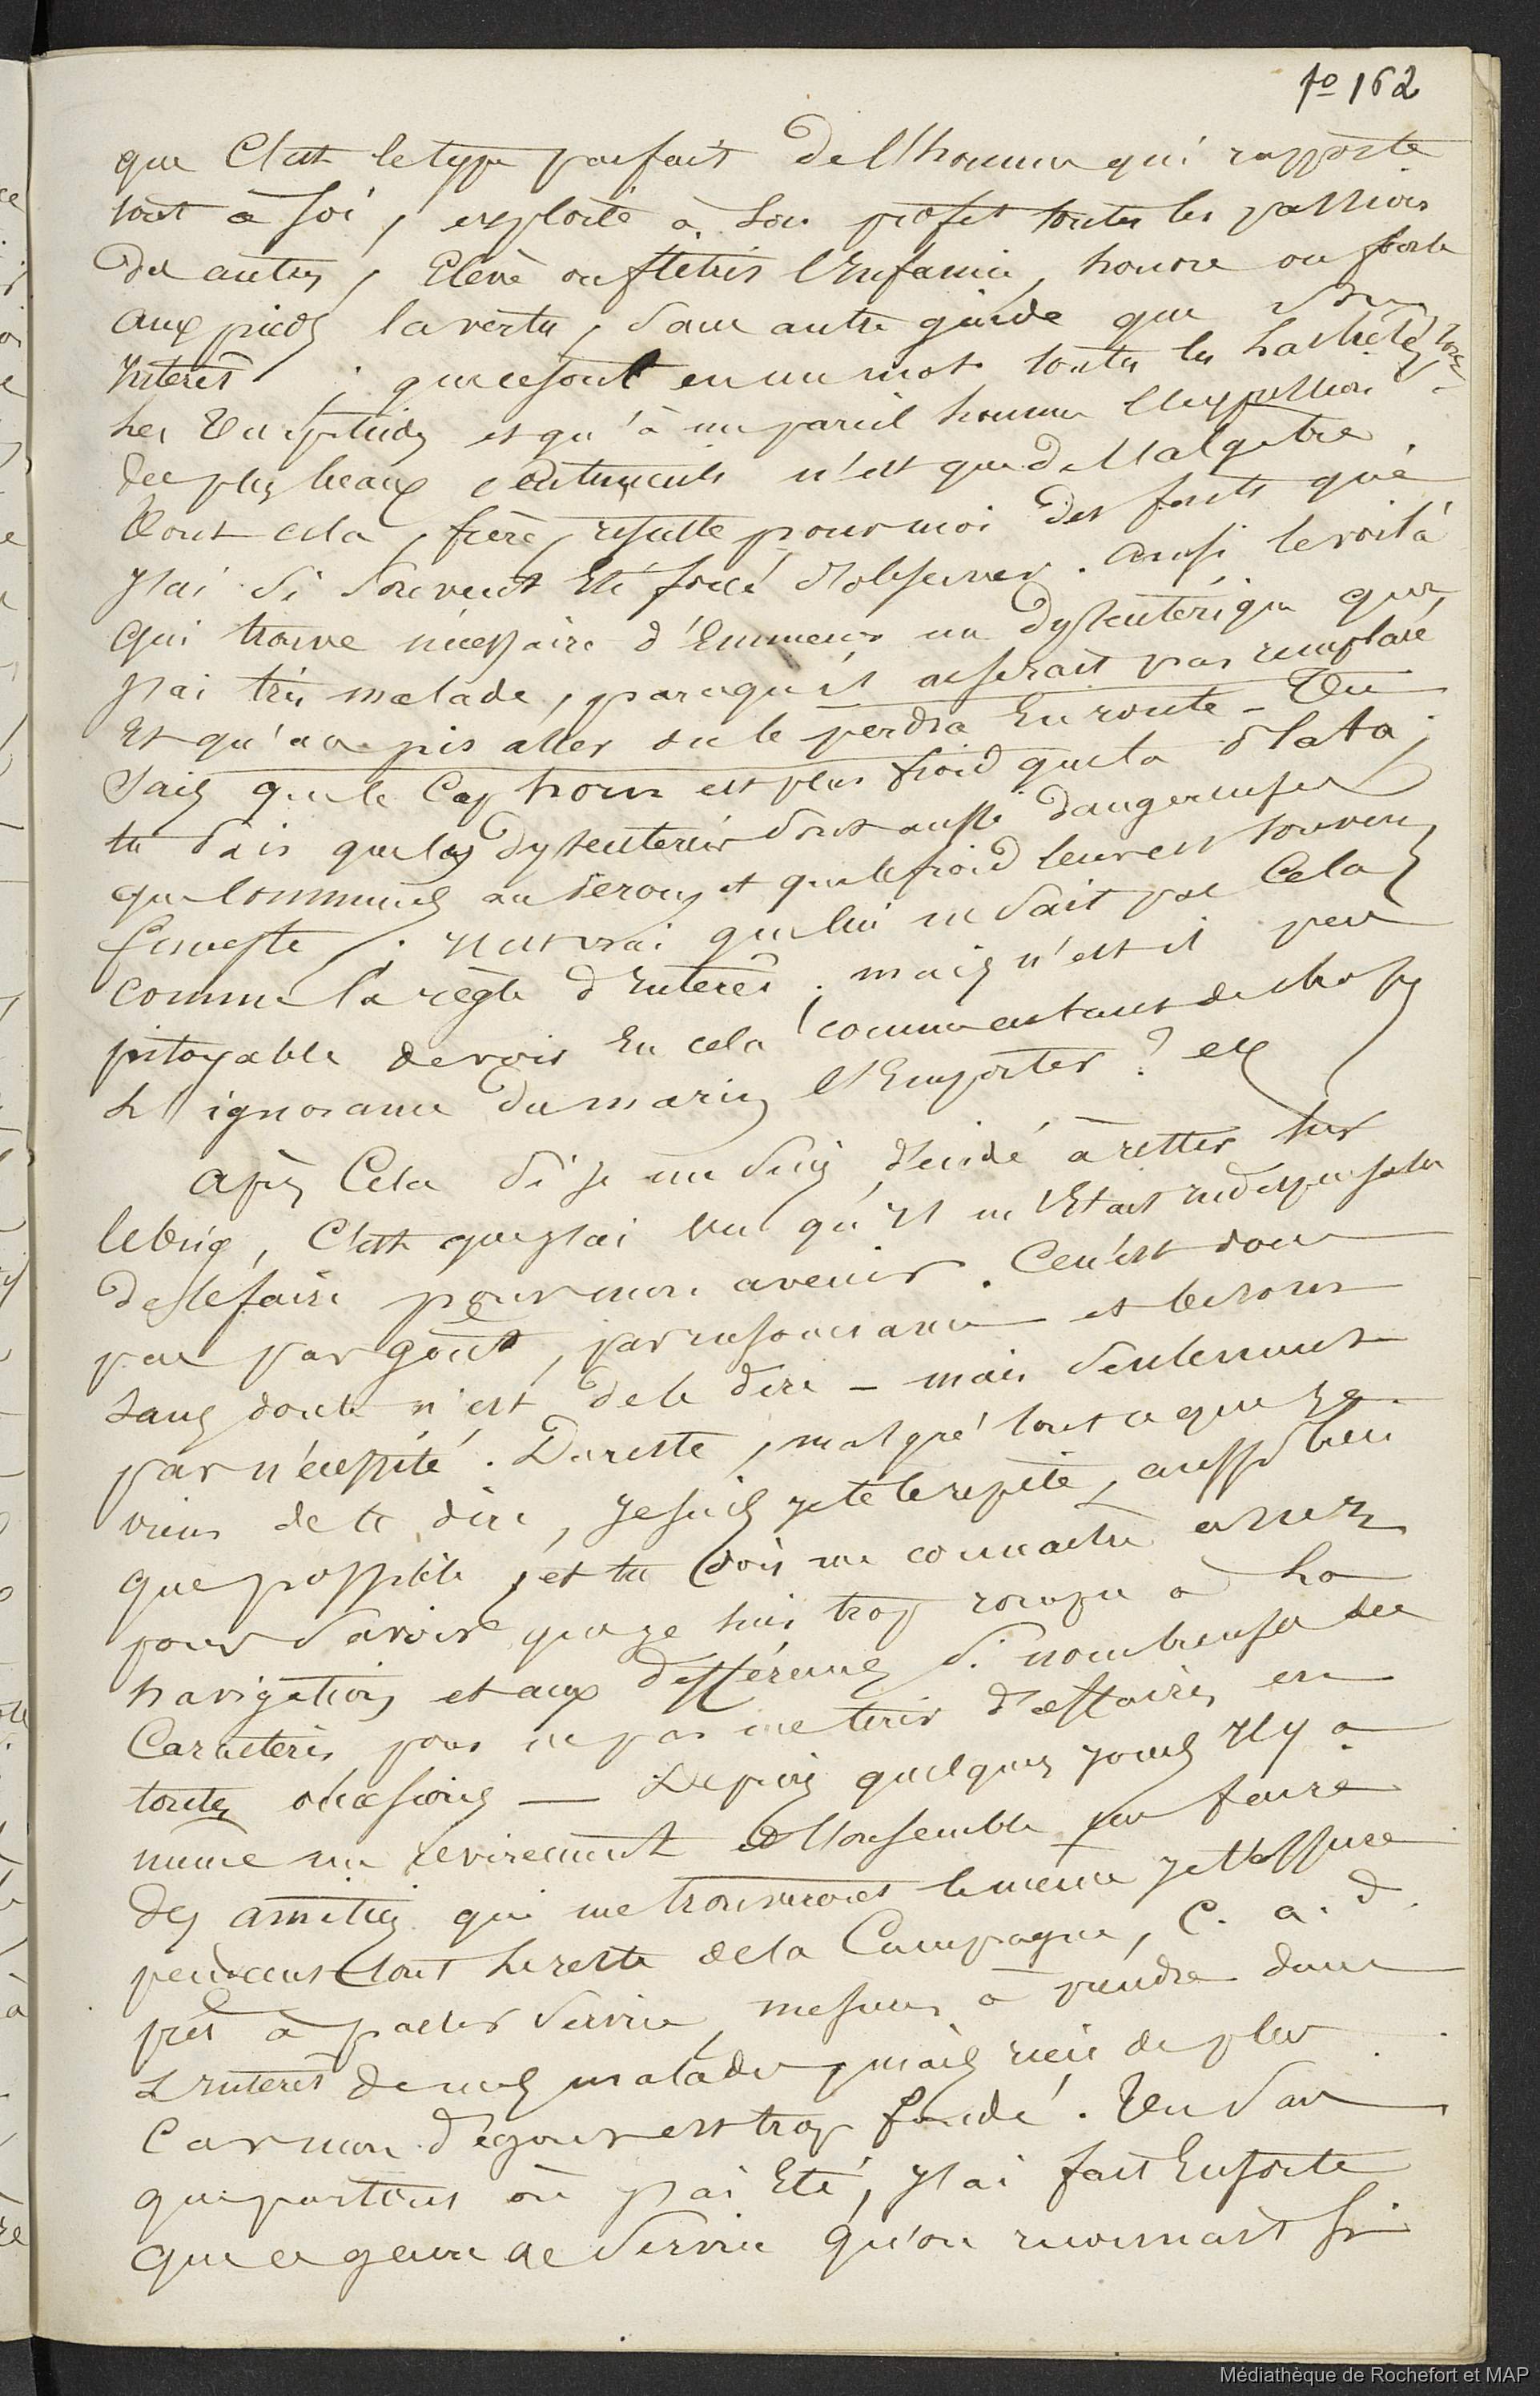 fo 162
que C'est le type parfait de l'homme qui rapporte
tout à soi, exploite à son profit toutes les passions
des autres, Elève ou flétris l'Infamie, honore ou foule
aux pieds la vertu, sans autre guide que son
Intérêt ; que ce sont en un mot toutes les lachetés
les turpitudes et qu'à un pareil homme l'expression
des plus beaux sentiments n'est que de l'algèbre.
Tout cela, frère, résulte pour moi des faits que
J'ai si souvent Eté forcé d'observer. Ainsi le voilà
qui trouve nécessaire d'Emmener un dyssentérique que
J'ai très malade, parcequ'il ne serait pas remplacé
Et qu'au pis aller on le perdra En route - Tu
Sais que le Cap horn est plus froid que la Plata ;
tu sais que les dyssenteries sont aussi dangereuses
que communes au Perou, et que le froid leur est souvent
funeste. Il est vrai que lui ne sait pas Cela
comme la règle d'Intérêt ; mais n'est il pas
pitoyable de voir En cela comme en tant de choses
L'ignorance du marin l'Emporter ? etc
Après Cela si je me suis décidé à rester sur
le brig, C'est que j'ai vu qu'Il m'Etait indispensable
de le faire pour mon avenir. Ce n'est donc
pas par goût, par insouciance et besoin
sans doute n'est de te dire - mais seulement
par nécessité. Du reste, malgré tout ce que Je
viens de te dire, Je suis, Je te le repète, aussi bien
que possible, et tu dois me connaitre assez
pour savoir que Je suis trop rompu à la
navigation et aux différences si nombreuses des
Caractères pour ne pas me tirer d'affaires en
toutes occasions — Depuis quelques jours Il y a
même un revirement et l'on semble me faire
des amitiés qui me trouveront le même Je t'assure
pendant tout le reste de la Campagne, C. a. d.
prêt à parler service, mesures à prendre dans
L'Intérêt de mes malades, mais rien de plus
Car mon dégout est trop fondé. Tu sais
que partout où J'ai Eté, J'ai fait Ensorte
que ce genre de service qu'on reconnait si
Médiathèque de Rochefort et MAP